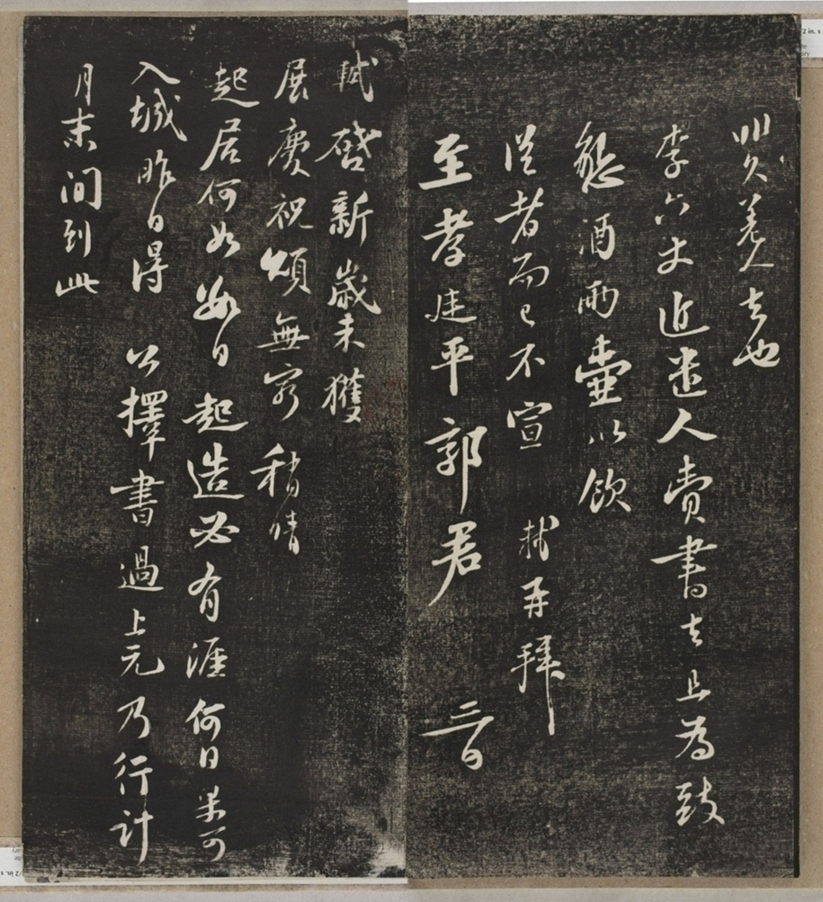 久差人去也
李六丈近遣人賫書去且為致
懇酒兩壺以飲
從者而已不宣 軾再拜
至孝廷平郭君
軾啓新歲未獲
展慶祝頌無窮稍晴
起居何如數日起造必有涯何日果可
入城昨日得 公擇書過上元乃行計
月末間到此